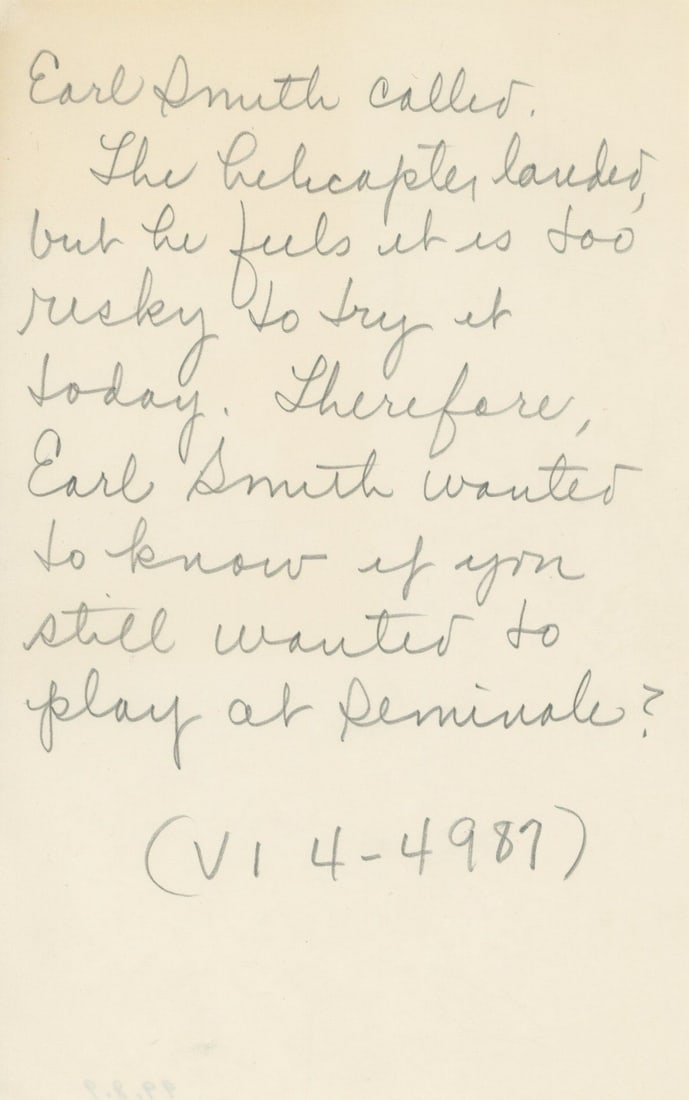 Earl Smith called.
The helicopter landed,
but he feels it is too
risky to try it
today. Therefore,
Earl Smith wanted
to know if you
still wanted to
play at Seminole?
(VI 4-4987)